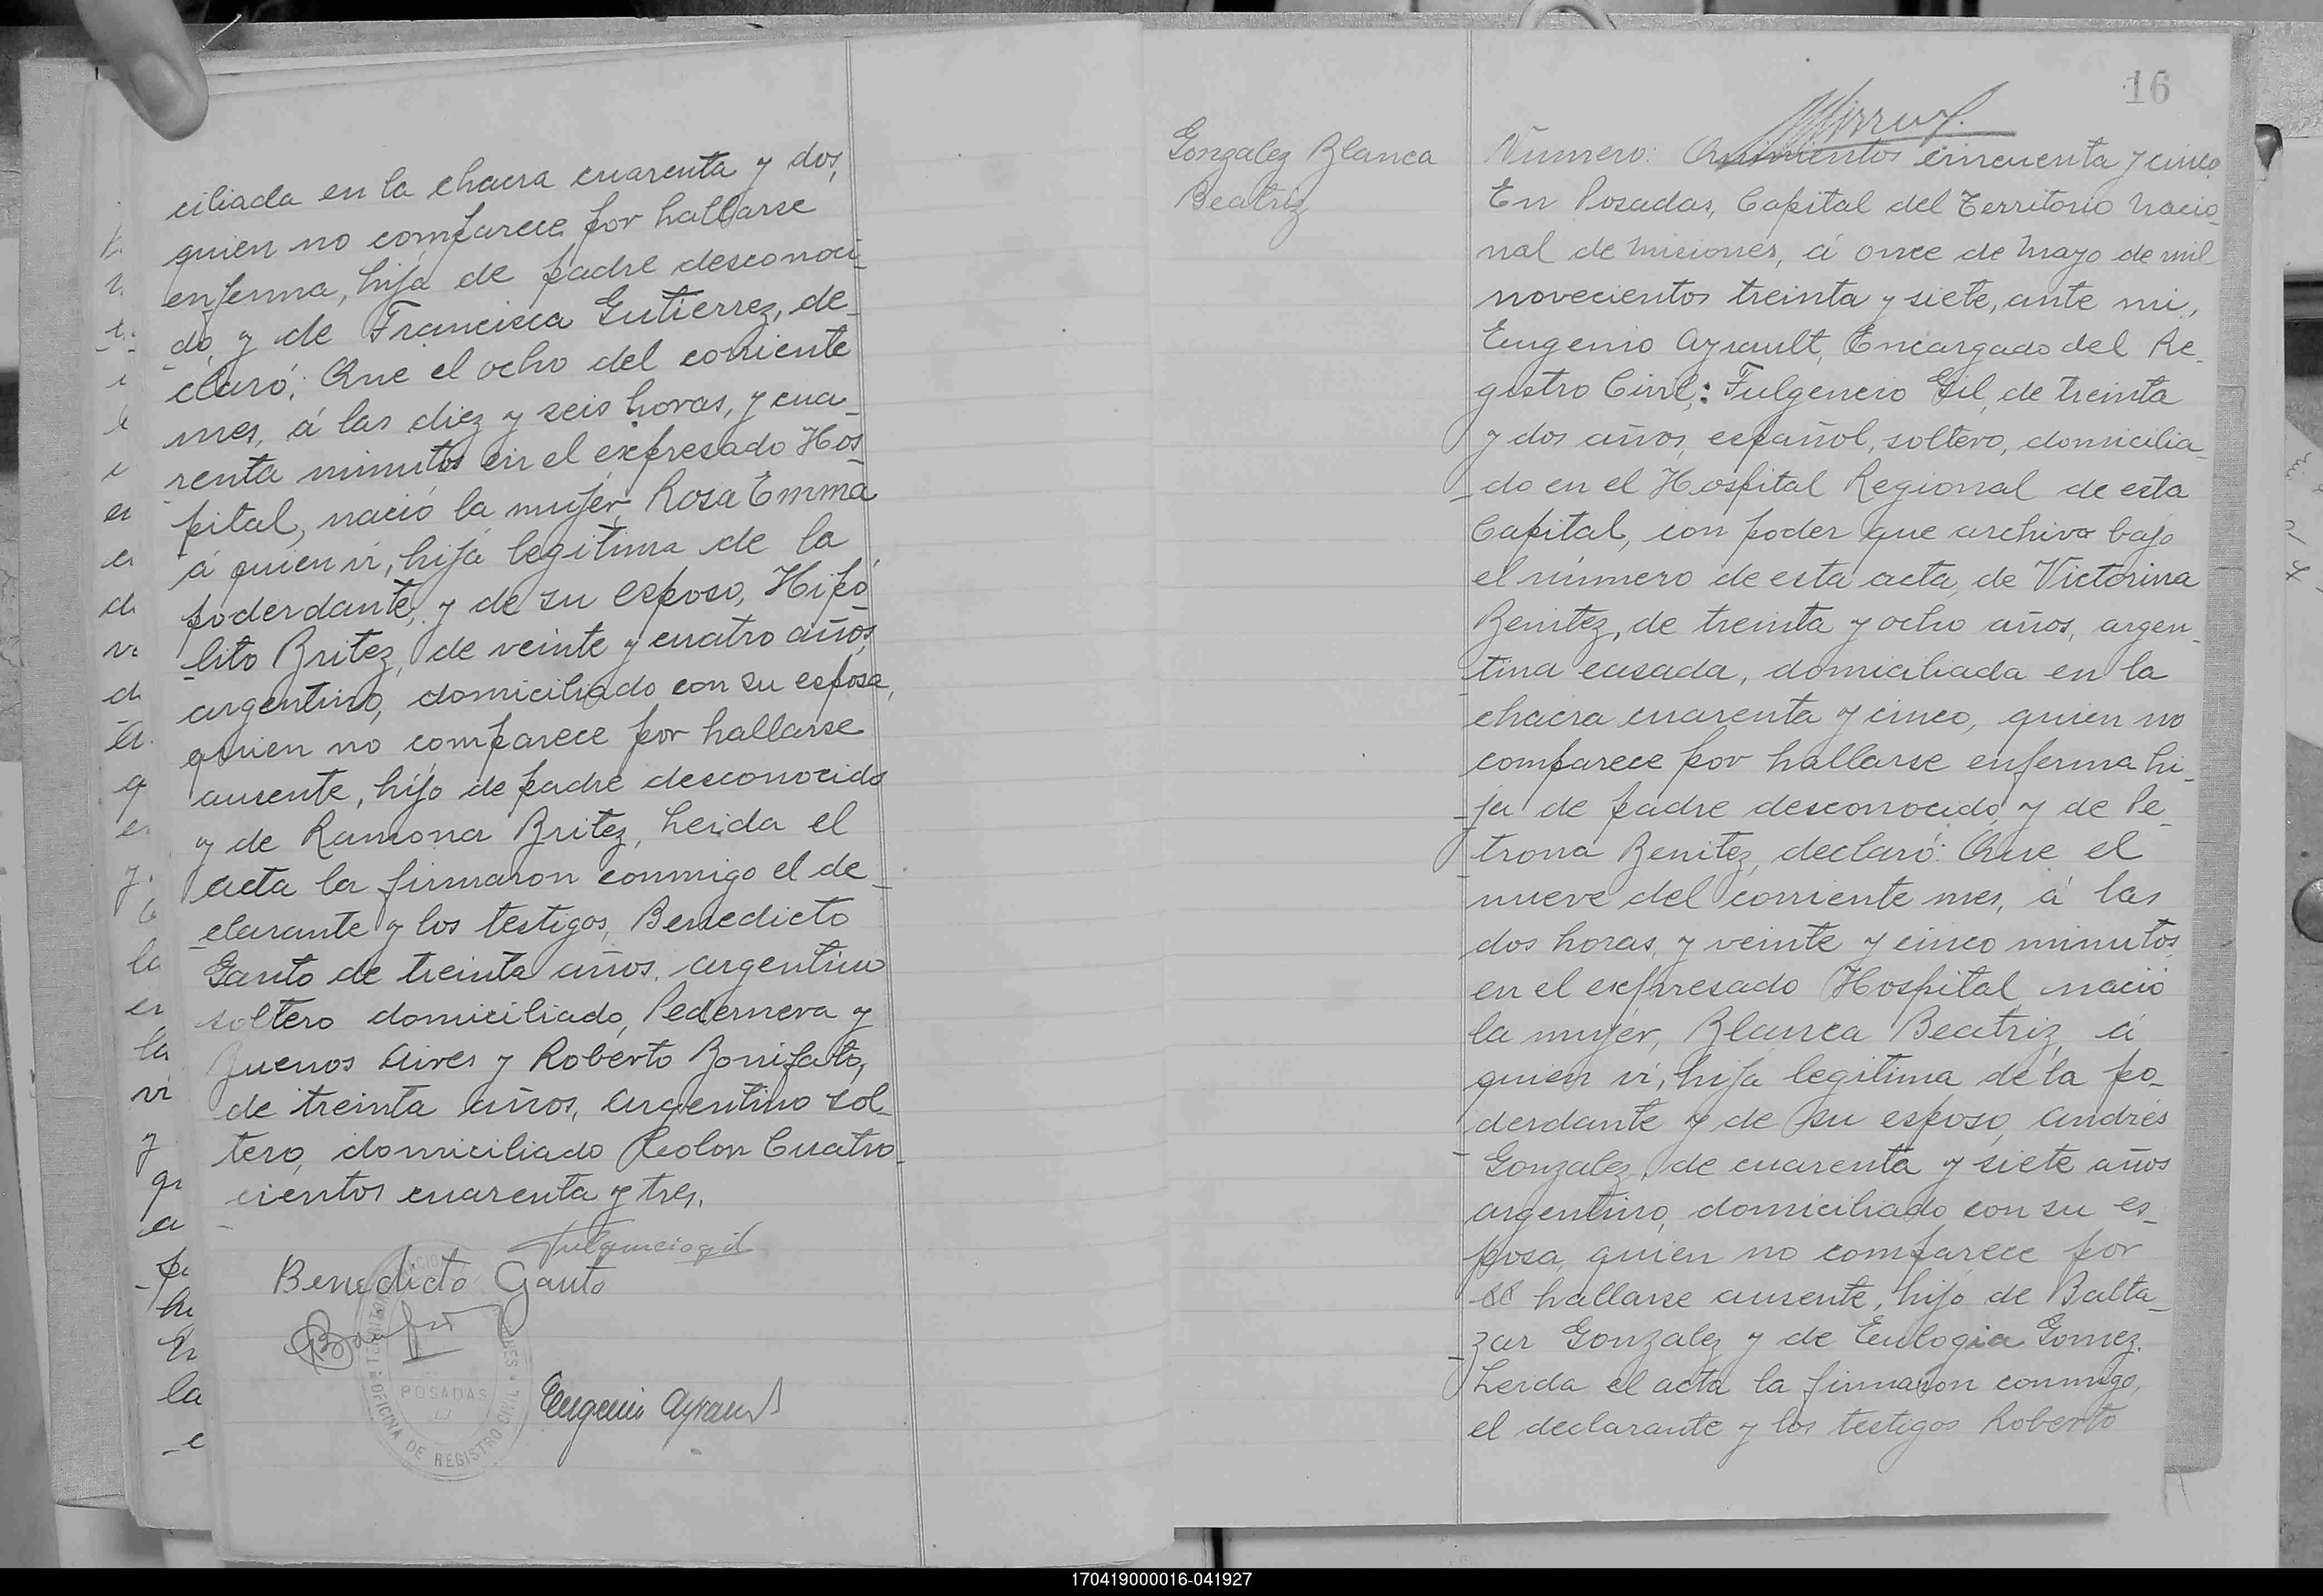 ciliada en la chacra cuarenta y dos,
quien no comparece por hallarse
enferma, hija de padre desconoci_
_do, y de Francisca Gutierrez, de_
claró: Que el ocho del corriente
mes, á las diez y seis horas, y cua_
renta minutos en el expresado Hos_
pital, nació la mujer, Rosa Emma
á quien vi, hija legitima de la
poderdante, y de su esposo, Hipó_
_lito Britez, de veinte y cuatro años,
argentino, domiciliado con su esposa,
quien no comparece por hallarse
ausente, hijo de padre desconocido
y de Ramona Britez, Leida el
acta la firmaron conmigo el de_
_clarante y los testigos, Benedicto
Ganto de treinta años, argentino
soltero domiciliado, Pedernera y
Buenos Aires y Roberto Bonifato,
de treinta años, argentino sol_
tero, domiciliado Colon Cuatro_
cientos cuarenta y tres.
Fulgencio gil
Benedicto Ganto
Eugenio Ayrault
POSADAS
OFICINA DE REGISTRO CIVIL
16
Gonzalez Blanca
Beatriz
Número: Quinientos cincuenta y cinco
En Posadas, Capital del Territorio Nacio_
nal de Misiones, á once de Mayo de mil
novecientos treinta y siete, ante mi,
Eugenio Ayrault, Encargado del Re_
gistro Civil,: Fulgencio Gil, de treinta
y dos años, español, soltero, domicilia_
_do en el Hospital Regional de esta
Capital, con poder que archivo bajo
el número de esta acta, de Victorina
Benitez, de treinta y ocho años, argen_
_tina casada, domiciliada en la
chacra cuarenta y cinco, quien no
comparece por hallarse enferma hi_
_ja de padre desconocido, y de Pe_
trona Benitez, declaró: Que el
nueve del corriente mes, á las
dos horas, y veinte y cinco minutos,
en el expresado Hospital nació
la mujer, Blanca Beatriz, á
quien vi, hija legitima de la po_
derdante y de su esposo, Andrés
Gonzalez, de cuarenta y siete años
argentino, domiciliado con su es_
posa, quien no comparece por
hallarse ausente, hijo de Balta_
_zar Gonzalez y de Eulogia Gomez.
Leida el acta la firmaron conmigo,
el declarante y los testigos Roberto
170419000016-041927